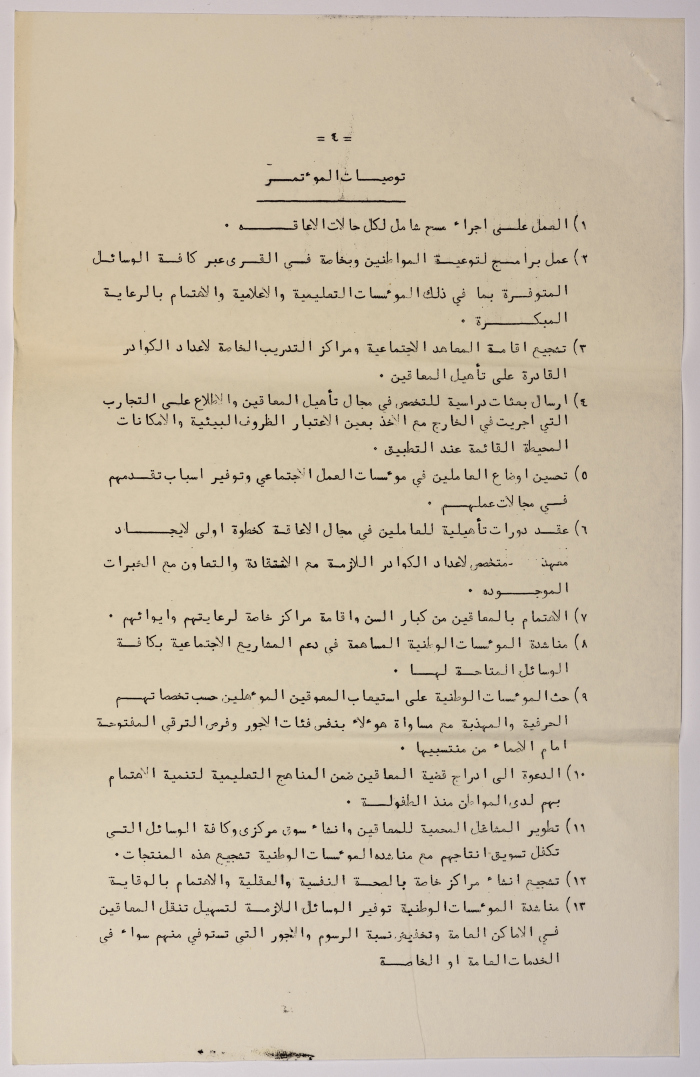 = ٤ =
توصيات المؤتمر
١) العمل على اجراء مسح شامل لكل حالات الاعاقه .
٢) عمل برامج لتوعية المواطنين وبخاصة في القرى عبر كافة الوسائل
المتوفرة بما في ذلك المؤسسات التعليمية والاعلامية والاهتمام بالرعاية
المبكرة .
٣) تشجيع اقامة المعاهد الاجتماعية ومراكز التدريب الخاصة لاعداد الكوادر
القادرة على تأهيل المعاقين .
٤) ارسال بعثات دراسية للتخصص في مجال تأهيل المعاقين والاطلاع على التجارب
التي اجريت في الخارج مع الاخذ بعين الاعتبار الظروف البيئية والامكانات
المحيطة القائمة عند التطبيق .
٥) تحسين اوضاع العاملين في مؤسسات العمل الاجتماعي وتوفير اسباب تقدمهم
في مجالات عملهم .
٦) عقد دورات تأهيلية للعاملين في مجال الاعاقة كخطوة اولى لايجاد
متخصص لاعداد الكوادر اللازمة مع والتعاون مع الخبرات
الموجوده .
٧) الاهتمام بالمعاقين من كبار السن واقامة مراكز خاصة لرعايتهم وايوائهم .
٨) مناشدة المؤسسات الوطنية المساهمة في دعم المشاريع الاجتماعية بكافة
الوسائل المتاحة لها .
٩) حث المؤسسات الوطنية على استيعاب المعوقين المؤهلين حسب تخصصاتهم
الحرفية والمهنية مع مساواة هؤلاء بنفس فئات الاجور وفرص الترقي المفتوحة
امام من منتسبيها .
١٠) الدعوة الى ادراج قضية المعاقين ضمن المناهج التعليمية لتنمية الاهتمام
بهم لدى المواطن منذ الطفولة .
١١) تطوير المشاغل المحمية للمعاقين وانشاء سوق مركزى وكافة الوسائل التي
تكفل تسويق انتاجهم مع مناشده المؤسسات الوطنية تشجيع هذه المنتجات .
١٢) تشجيع انشاء مراكز خاصة بالصحة النفسية والعقلية والاهتمام بالوقاية
١٣) مناشدة المؤسسات الوطنية توفير الوسائل اللازمة لتسهيل تنقل المعاقين
في الاماكن العامة وتخفيض نسبة الرسوم والاجور التي تستوفي منهم سواء في
الخدمات العامة او الخاصة